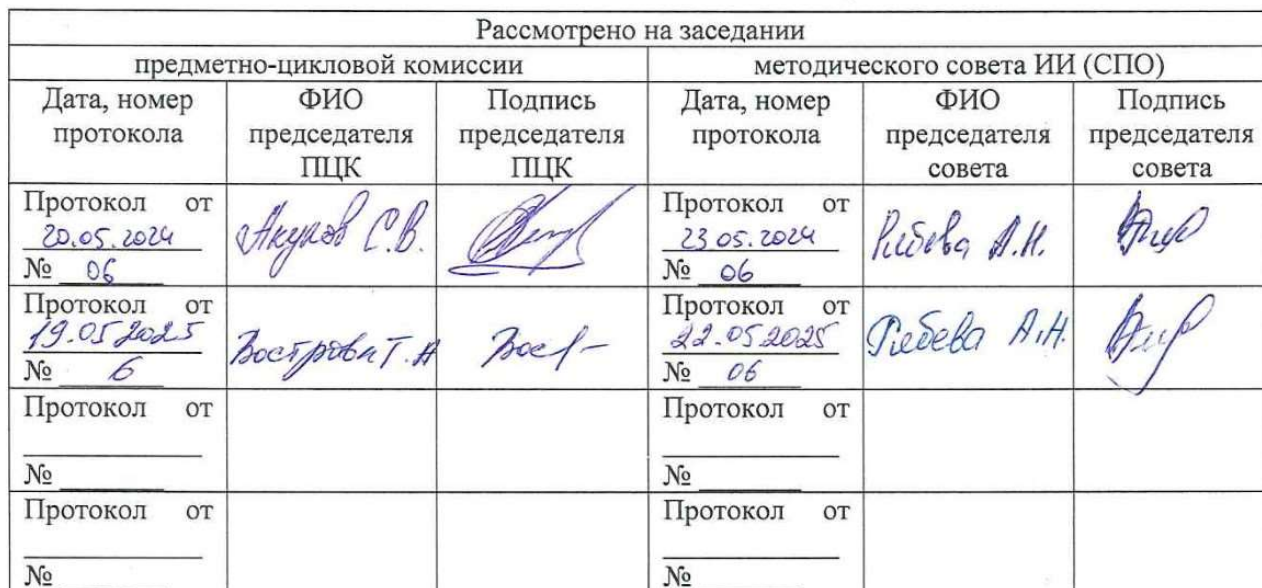 Рассмотрено на заседании
предметно-цикловой комиссии методического совета ИИ (СПО)
Дата, номер протокола ФИО председателя ПЦК Подпись председателя ПЦК Дата, номер протокола ФИО председателя совета Подпись председателя совета
Протокол от
20.05.2024
№ 06
С.В.
Протокол от
23.05.2024
№ 06
А.Н.
Протокол от
19.05.2025
№ 6
Вострова Т.А
Протокол от
22.05.2025
№ 06
А.Н.
Протокол от
№
Протокол от
№
Протокол от
№
Протокол от
№